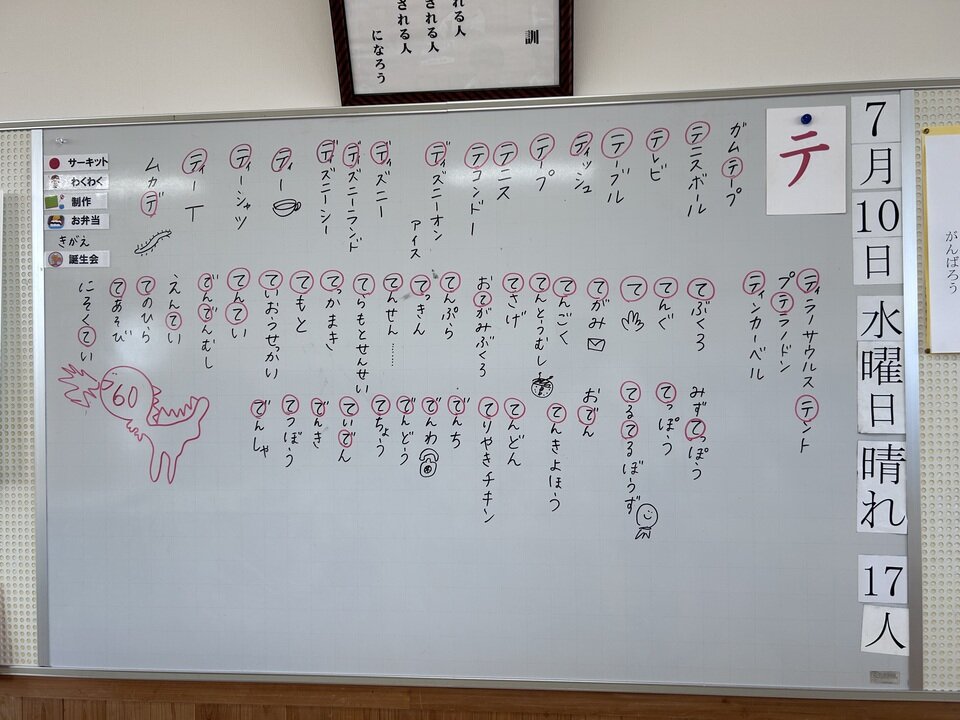 訓
れる人
される人
になろう
7月10日 水曜日 晴れ 17人
がんばろう
テ
ガムテープ
テニスボール
テレビ
テーブル
ティッシュ
テープ
テニス
テコンドー
ディズニーオン
アイス
ディズニー
ディズニーランド
ディズニーシー
ティー
ティーシャツ
ティーT
ムカデ
サーキット
わくわく
制作
お弁当
きがえ
誕生会
ティラノサウルス テント
プテラノドン
ティンカーベル
てぶくろ
てんぐ
て
てがみ
てんごく
てんとうむし
てさげ
おてがみぶくろ
てんぷら
てっきん
てんせん……
てらもとせんせい
てっかまき
てもと
ていおうせっかい
てんてい
でんでんむし
えんてい
てのひら
てあそび
にそくてい
みずてっぽう
てっぽう
てるてるぼうず
おでん
てんきよほう
てんどん
てりやきチキン
でんち
でんわ
でんどう
てちょう
ていでん
でんき
てつぼう
でんしゃ
60